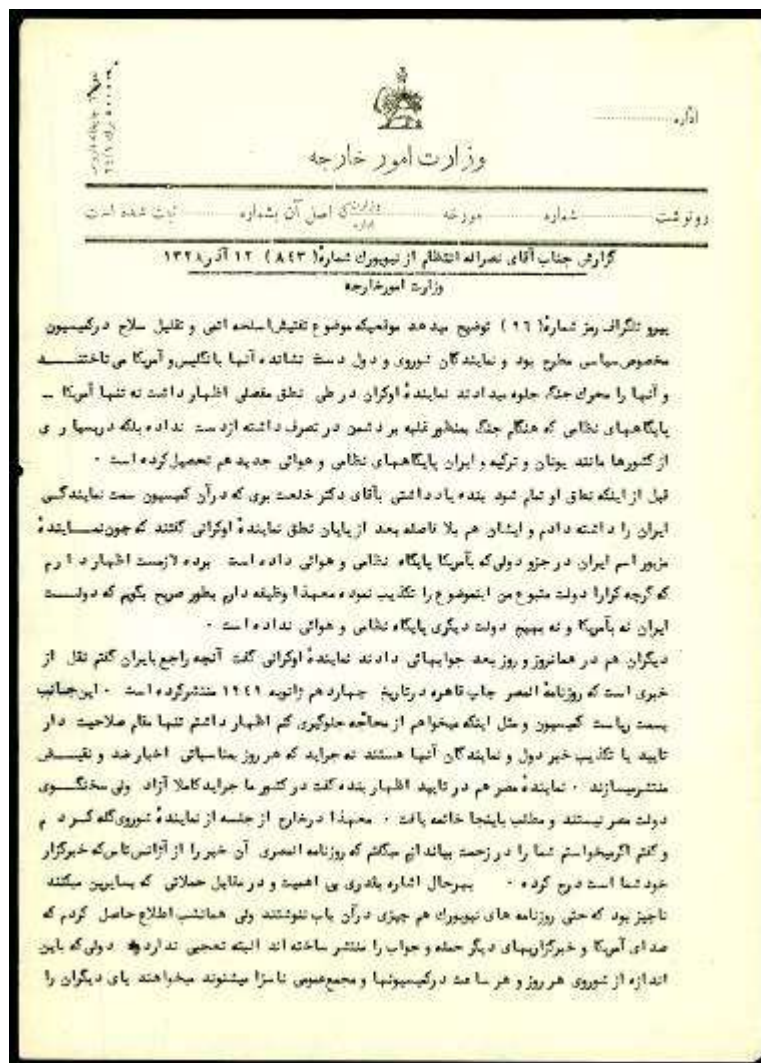 اداره
وزارت امور خارجه
رونوشت شماره مورخه که اصل آن بشماره ثبت شده است
گزارش جناب آقای نصراله انتظام از نیویورک شماره (۸۴۳) ۱۲ آذر ۱۳۲۸
وزارت امورخارجه
پیرو تلگراف رمز شماره (۹۶) توضیح میدهد موقعیکه موضوع تفتیش اسلحه اتمی و تقلیل سلاح درکمیسیون
مخصوص سیاسی مطرح بود و نمایندگان شوروی و دول دست نشانده آنها بانگلیس و آمریکا می تاختند
و آنها را محرک جنگ جلوه میدادند نمایندهٔ اوکران در طی نطق مفصلی اظهار داشت نه تنها آمریکا -
پایگاههای نظامی که هنگام جنگ بمنظور غلبه بر دشمن در تصرف داشته ازدست نداده بلکه دربسیا ر ی
از کشورها مانند یونان و ترکیه و ایران پایگاههای نظامی و هوائی جدید هم تحصیل کرده است ۰
قبل از اینکه نطق او تمام شود بنده یادداشتی بآقای دکتر خلعت بری که درآن کمیسیون سمت نمایندگی
ایران را داشته دادم و ایشان هم بلا فاصله بعد از پایان نطق نمایندهٔ اوکرانی گفتند که چون نمایندهٔ
مزبور اسم ایران در جزو دولی که بآمریکا پایگاه نظامی و هوائی داده است برده لازمست اظهار د ا ر م
که گرچه کرارا دولت متبوع من اینموضوع را تکذیب نموده معهذا وظیفه دارم بطور صریح بگویم که دولت
ایران نه بآمریکا و نه بهیچ دولت دیگری پایگاه نظامی و هوائی نداده است ۰
دیگران هم در همانروز و روز بعد جوابهائی دادند نمایندهٔ اوکرانی گفت آنچه راجع بایران گفتم نقل از
خبری است که روزنامهٔ المصر چاپ قاهره درتاریخ چهارد هم ژانویه ۱۹۴۹ منتشرکرده است ۰ این جانب
بسمت ریاست کمیسیون و مثل اینکه میخواهم از محاجّه جلوگیری کنم اظهار داشتم تنها مقام صلاحیت دار
تایید یا تکذیب خبر دول و نمایندگان آنها هستند نه جراید که هر روز بمناسباتی اخبار ضد و نقیض
منتشرمیسازند ۰ نمایندهٔ مصر هم در تایید اظهار بنده گفت در کشور ما جراید کاملا آزاد ولی سخنگوی
دولت مصر نیستند و مطلب باینجا خاتمه یافت ۰ معهذا درخارج از جلسه از نمایندهٔ شوروی گله کر د م
و گفتم اگر میخواستم شما را در زحمت بیاندازم میگفتم که روزنامه المصری آن خبر را از آژانس تاس که خبرگزار
خود شما است درج کرده ۰ بهرحال اشاره بقدری بی اهمیت و در مقابل حملاتی که بسایرین میکنند
ناچیز بود که حتی روزنامه های نیویورک هم چیزی درآن باب ننوشتند ولی همانشب اطلاع حاصل کردم که
صدای آمریکا و خبرگزاریهای دیگر حمله و جواب را منتشر ساخته اند البته تعجبی ندارد دولی که باین
اندازه از شوروی هر روز و هر ساعت درکمیسیونها و مجمع عمومی ناسزا میشنوند میخواهند پای دیگران را